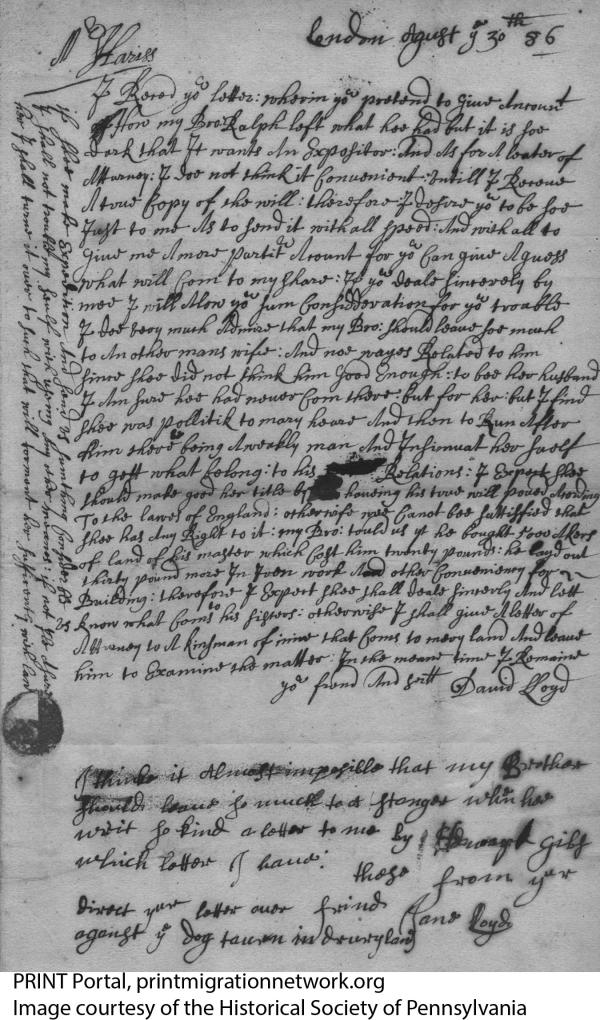 London Agust ye 30th 86
Mr Hariss
I Reced yor letter: wherin yor pretend to Give Account
How my Bro: Ralph left what hee had but it is soe
dark that It wants An Expositor: And As for A leater of
Atturney: I doe not think it Convenient: Intill I Receve
A true Copy of the will: therefore I desire yor to be soe
Just to me As to send it with all speed: And with all to
Give me A more partit Acount for yor Can give A guess
what will Com to my share: If yor deale sincerely by
mee I will Alow yor sum Considderation for yor trouble
I doe very much Admire that my Bro: should leave soe much
to An other mans wife: And noe wayes Related to him
since shee did not think him Good Enough: to bee her husband
I Am sure hee had never Com there: but for her: but I find
shee was pollitik to mary heare And then to Run After
him there being A weakly man And Insinuat her sealf
to gett what belong: to his Relations: I Expect shee
should make good her title by haveing his true will
To the lawes of England: otherwise wee Canot bee sattisfied that
shee has Any Right to it: my Bro: tould us yt he bought 5000 Akers
of land of his master which Cost him twenty pounds: he layd out
thirty pound more In Iren work And other Conveniency for
Building: therefore I Expect shee shall deale sincerly And lett
us know what Coms to his sisters: otherwise I shall Give A letter of
Atturney to A kinsman of mine that Coms to mery land And leave
him to Examine the matter: In the meane time I Remaine
yor friend And David Lloyd
If shee make Expedition And send us sumthing
I shall not trouble my sealf with useing Any other meanes: if not
her I shall turne it over to such that will torment her sufficently with law
I thinke it Almost imposible that my Brother
should leave so much to a stanger when hee
writ so kind a letter to me by Edward Gibs
which letter I have: these from yer
direct yer letter over frind
against ye dog tavern in drurylane Jane Loyd
PRINT Portal, printmigrationnetwork.org
Image courtesy of the Historical Society of Pennsylvania